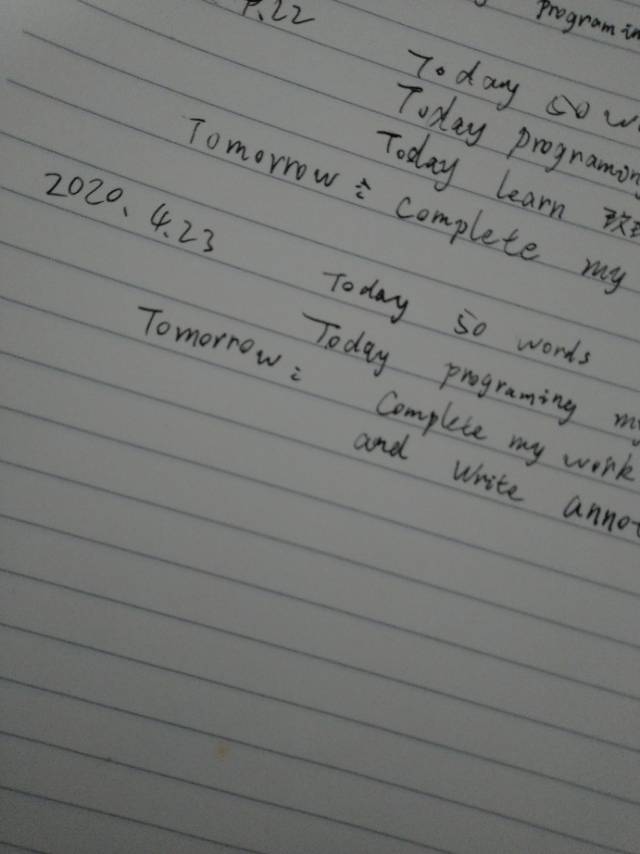 programin
4.22
Today 50 w
Today programing
Today learn
Tomorrow: Complete my
2020.4.23
Today 50 words
Today programing my
Tomorrow:
Complete my work
and write annot